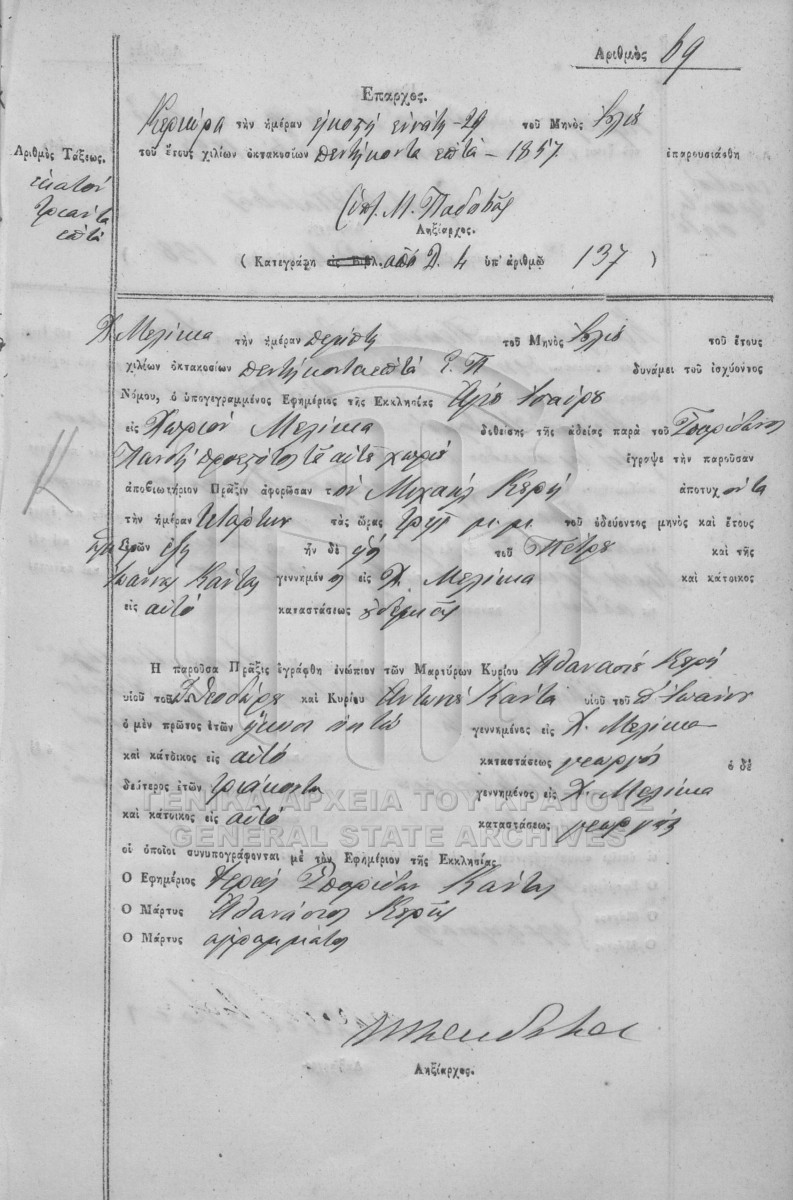 Αριθμὸς 69
Επαρχος.
Κερκύρα τὴν ἡμέραν εἰκοστῇ εννάτῃ - 29 τοῦ Μηνὸς Ἰουλίου
τοῦ ἔτους χιλίων ὀκτακοσίων πεντήκοντα ἑπτὰ - 1857 ἐπαρουσιάσθη
Αριθμὸς Τάξεως.
ἑκατὸν
τριάντα
επτὰ
(ὑπ. Μ. Παδοβᾶς
Ληξίαρχος.
( Κατεγράφη εἰς Βιβλ. ἀπὸ Σ. 4 ὑπ' ἀριθμῷ 137 )
Χ. Μελίκια τὴν ἡμέραν πέμπτῃ τοῦ Μηνὸς Ἰουλίου τοῦ ἔτους
χιλίων ὀκτακοσίων πεντήκοντα ἑπτὰ Ε. Π. δυνάμει τοῦ ἰσχύοντος
Νόμου, ὁ ὑπογεγραμμένος Ἐφημέριος τῆς Ἐκκλησίας Ἁγίου
εἰς Χωρίον Μελίκια δοθείσης τῆς ἀδείας παρὰ τοῦ Σπυρίδωνος
προεστότος τοῦ αὐτοῦ χωρίου ἔγραψε τὴν παροῦσαν
ἀποβιωτήριον Πρᾶξιν ἀφορῶσαν τὸν Μιχαὴλ Κερῆ ἀποτυχόντα
τὴν ἡμέραν Τετάρτην τὰς ὥρας τρεῖς μ. μ. τοῦ ὁδεύοντος μηνὸς καὶ ἔτους
ἐτῶν ἕξη ἦν δὲ υἱὸς τοῦ Πέτρου καὶ τῆς
Κάντας γεννημένος εἰς Χ. Μελίκια καὶ κάτοικος
εἰς αὐτὸ καταστάσεως οὐδεμιᾶς
Η παροῦσα Πρᾶξις ἐγράφθη ἐνώπιον τῶν Μαρτύρων Κυρίου Ἀθανασίου Κερῆ
υἱοῦ τοῦ Θεοδώρου καὶ Κυρίου Ἀντωνίου Κάντα υἱοῦ τοῦ Ἰωάννου
ὁ μὲν πρῶτος ἐτῶν εἴκοσι ὀκτὼ γεννημένος εἰς Χ. Μελίκια
καὶ κάτοικος εἰς αὐτὸ καταστάσεως γεωργὸς ὁ δὲ
δεύτερος ἐτῶν τριάκοντα γεννημένος εἰς Χ. Μελίκια
καὶ κάτοικος εἰς αὐτὸ καταστάσεως γεωργὸς
οἱ ὁποῖοι συνυπογράφονται μὲ τὸν Ἐφημέριον τῆς Ἐκκλησίας
Ο Ἐφημέριος Ἱερεὺς Σπυρίδων Κάντας
Ο Μάρτυς Ἀθανάσιος Κερῆς
Ο Μάρτυς ἀγράμματος
Ληξίαρχος.
ΓΕΝΙΚΑ ΑΡΧΕΙΑ ΤΟΥ ΚΡΑΤΟΥΣ
GENERAL STATE ARCHIVES